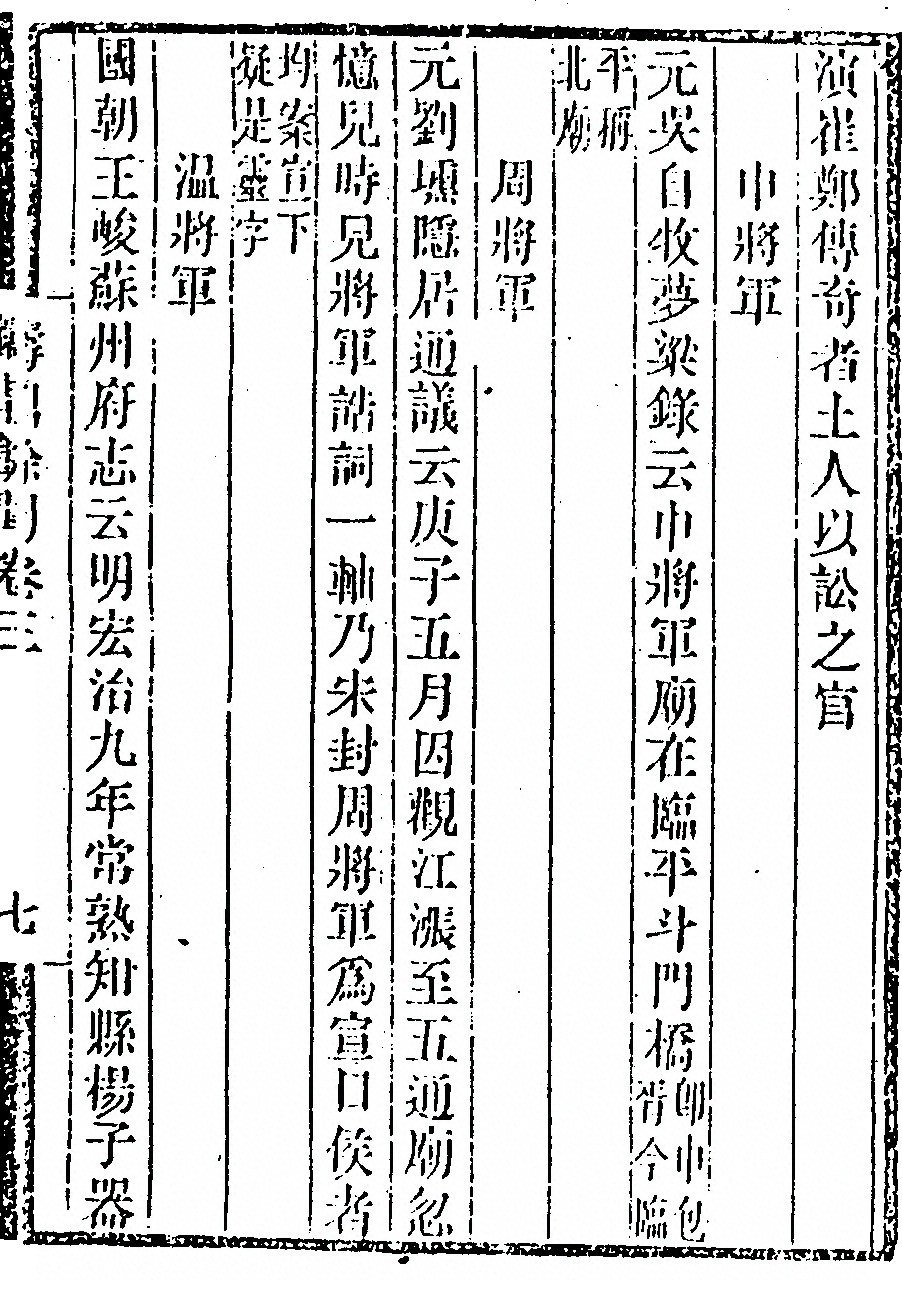 演崔鄭傳奇者土人以訟之官
申將軍
元吳自牧夢粱錄云申將軍廟在臨平斗門橋卽申包
胥今臨
平稱
北廟
周將軍
元劉壎隱居通議云庚子五月因觀江漲至五通廟忽
憶兒時見將軍誥詞一軸乃宋封周將軍爲宣日侯者
均案宣下
疑是靈字
温將軍
國朝王峻蘇州府志云明宏治九年常熟知縣楊子器
卷三
七